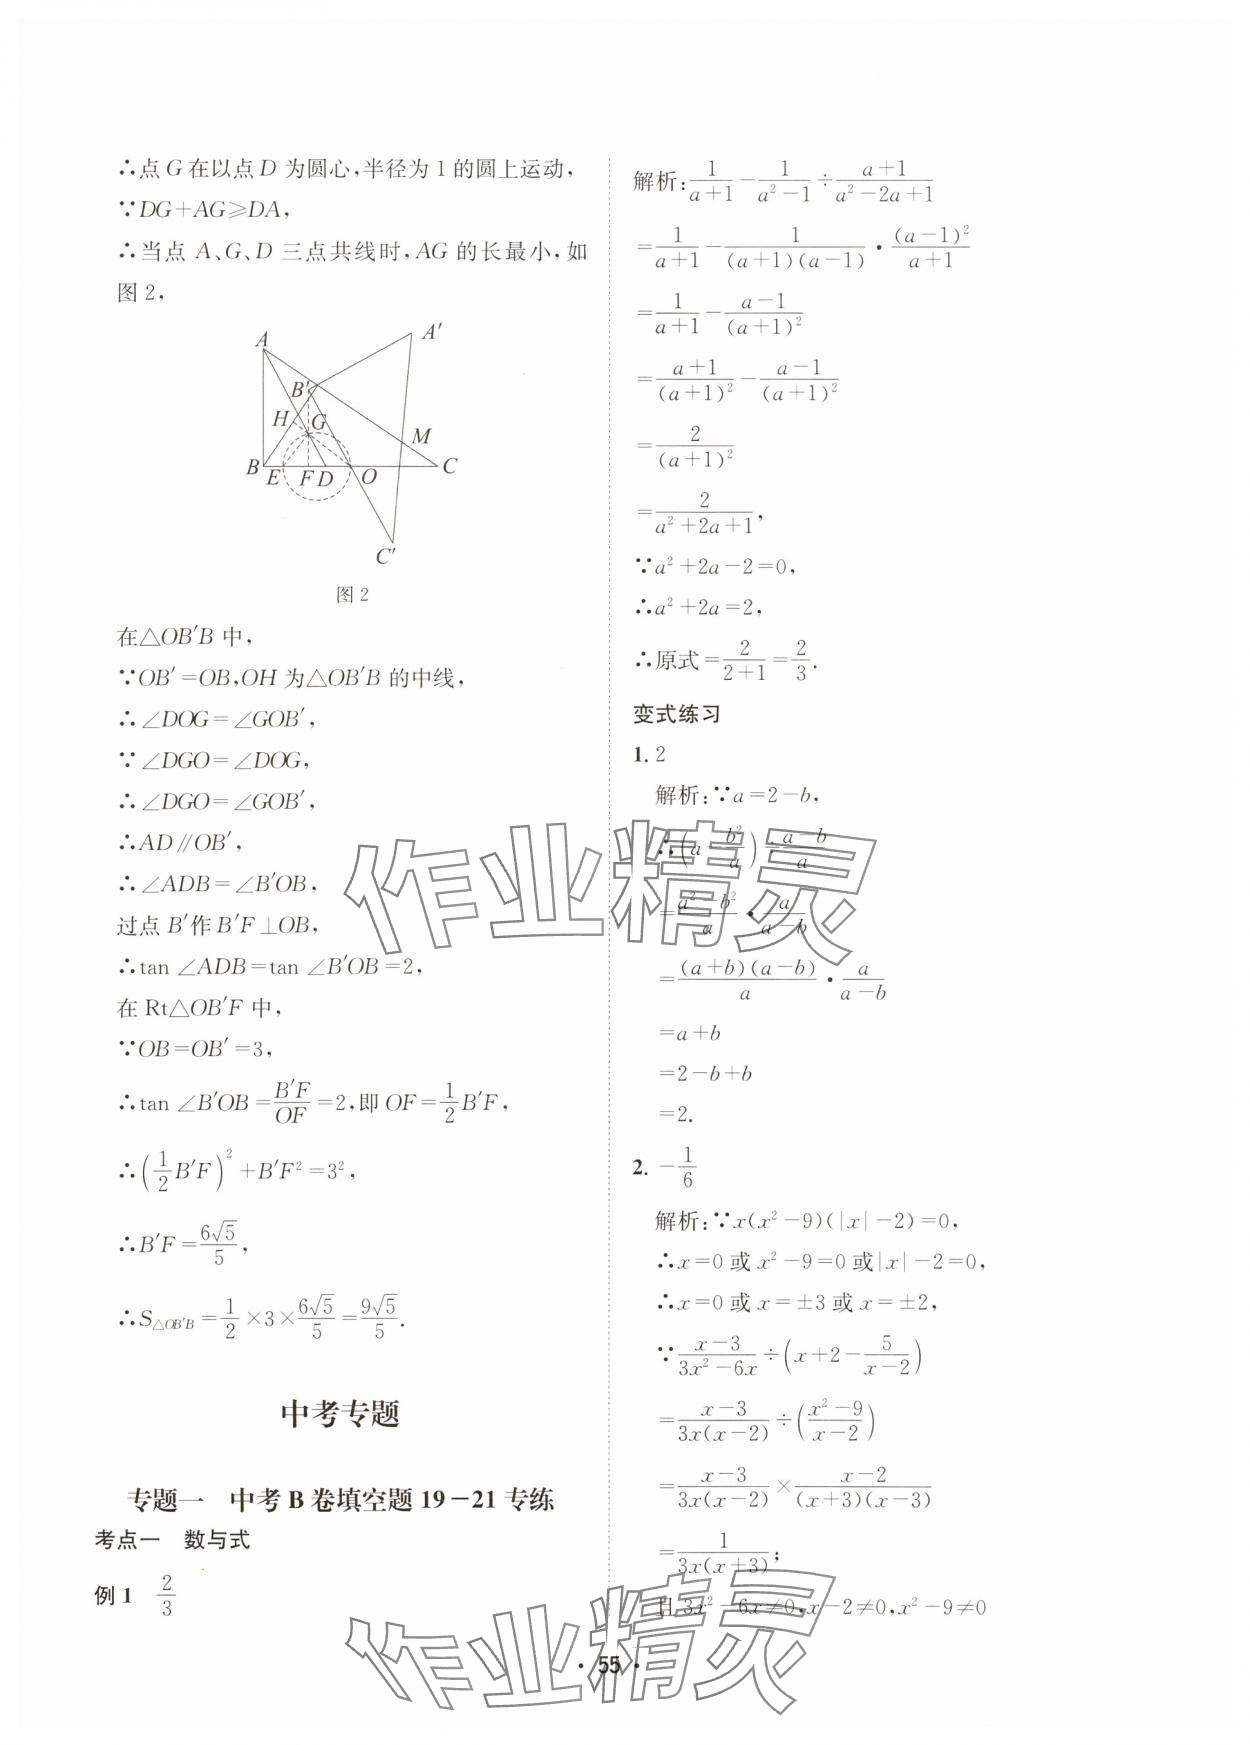 ∴点 G 在以点 D 为圆心,半径为 1 的圆上运动,
∵DG+AG≥DA,
∴当点 A、G、D 三点共线时,AG 的长最小,如
图 2,
A
A′
B′
H
G
M
B
E
F
D
O
C
C′
图 2
在△OB′B 中,
∵OB′=OB,OH 为△OB′B 的中线,
∴∠DOG=∠GOB′,
∵∠DGO=∠DOG,
∴∠DGO=∠GOB′,
∴AD∥OB′,
∴∠ADB=∠B′OB,
过点 B′作 B′F⊥OB,
∴tan ∠ADB=tan ∠B′OB=2,
在 Rt△OB′F 中,
∵OB=OB′=3,
∴tan ∠B′OB=B′F/OF=2,即 OF=1/2 B′F,
∴(1/2 B′F)²+B′F²=3²,
∴B′F=6√5/5,
∴S△OB′B=1/2×3×6√5/5=9√5/5.
中考专题
专题一　中考 B 卷填空题 19－21 专练
考点一　数与式
例 1　2/3
解析:1/(a+1)－1/(a²－1)÷(a+1)/(a²－2a+1)
=1/(a+1)－1/((a+1)(a－1))•(a－1)²/(a+1)
=1/(a+1)－(a－1)/(a+1)²
=(a+1)/(a+1)²－(a－1)/(a+1)²
=2/(a+1)²
=2/(a²+2a+1),
∵a²+2a－2=0,
∴a²+2a=2,
∴原式=2/(2+1)=2/3.
变式练习
1. 2
解析:∵a=2－b,
∴(a－b²/a)÷(a－b)/a
=(a²－b²)/a•a/(a－b)
=(a+b)(a－b)/a•a/(a－b)
=a+b
=2－b+b
=2.
2. －1/6
解析:∵x(x²－9)(|x|－2)=0,
∴x=0 或 x²－9=0 或|x|－2=0,
∴x=0 或 x=±3 或 x=±2,
∵(x－3)/(3x²－6x)÷(x+2－5/(x－2))
=(x－3)/(3x(x－2))÷((x²－9)/(x－2))
=(x－3)/(3x(x－2))×(x－2)/((x+3)(x－3))
=1/(3x(x+3));
且 3x²－6x≠0,x－2≠0,x²－9≠0
• 55 •
作业精灵
作业精灵